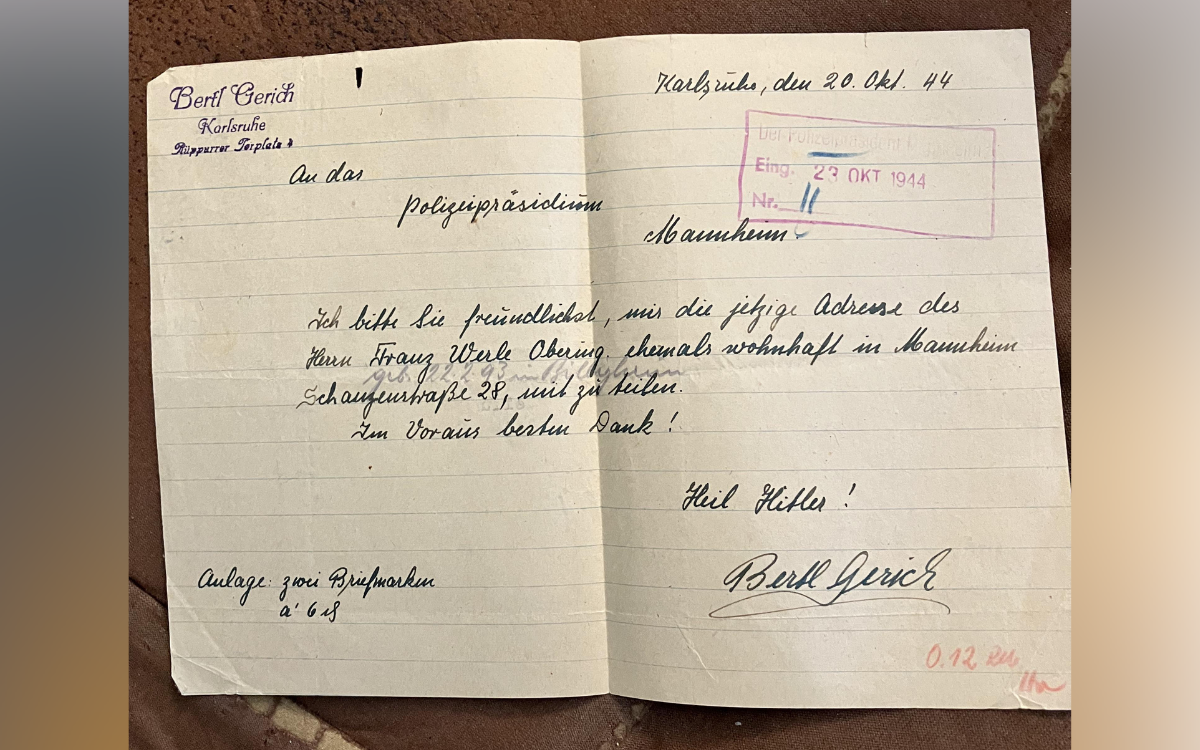 Bertl Gerich
Karlsruhe
Rüppurrer Torplatz
Karlsruhe, den 20. Okt. 44
Der Polizeipräsident
Eing. 23 OKT 1944
Nr. 11
An das
Polizeipräsidium
Mannheim.
Ich bitte Sie freundlichst, mir die jetzige Adresse des
Herrn Franz Werle Obering. ehemals wohnhaft in Mannheim
geb. 22.2.93 in
Schanzenstraße 28, mit zu teilen.
Im Voraus besten Dank!
Heil Hitler!
Bertl Gerich
Anlage: zwei Briefmarken
a' 6
0.12